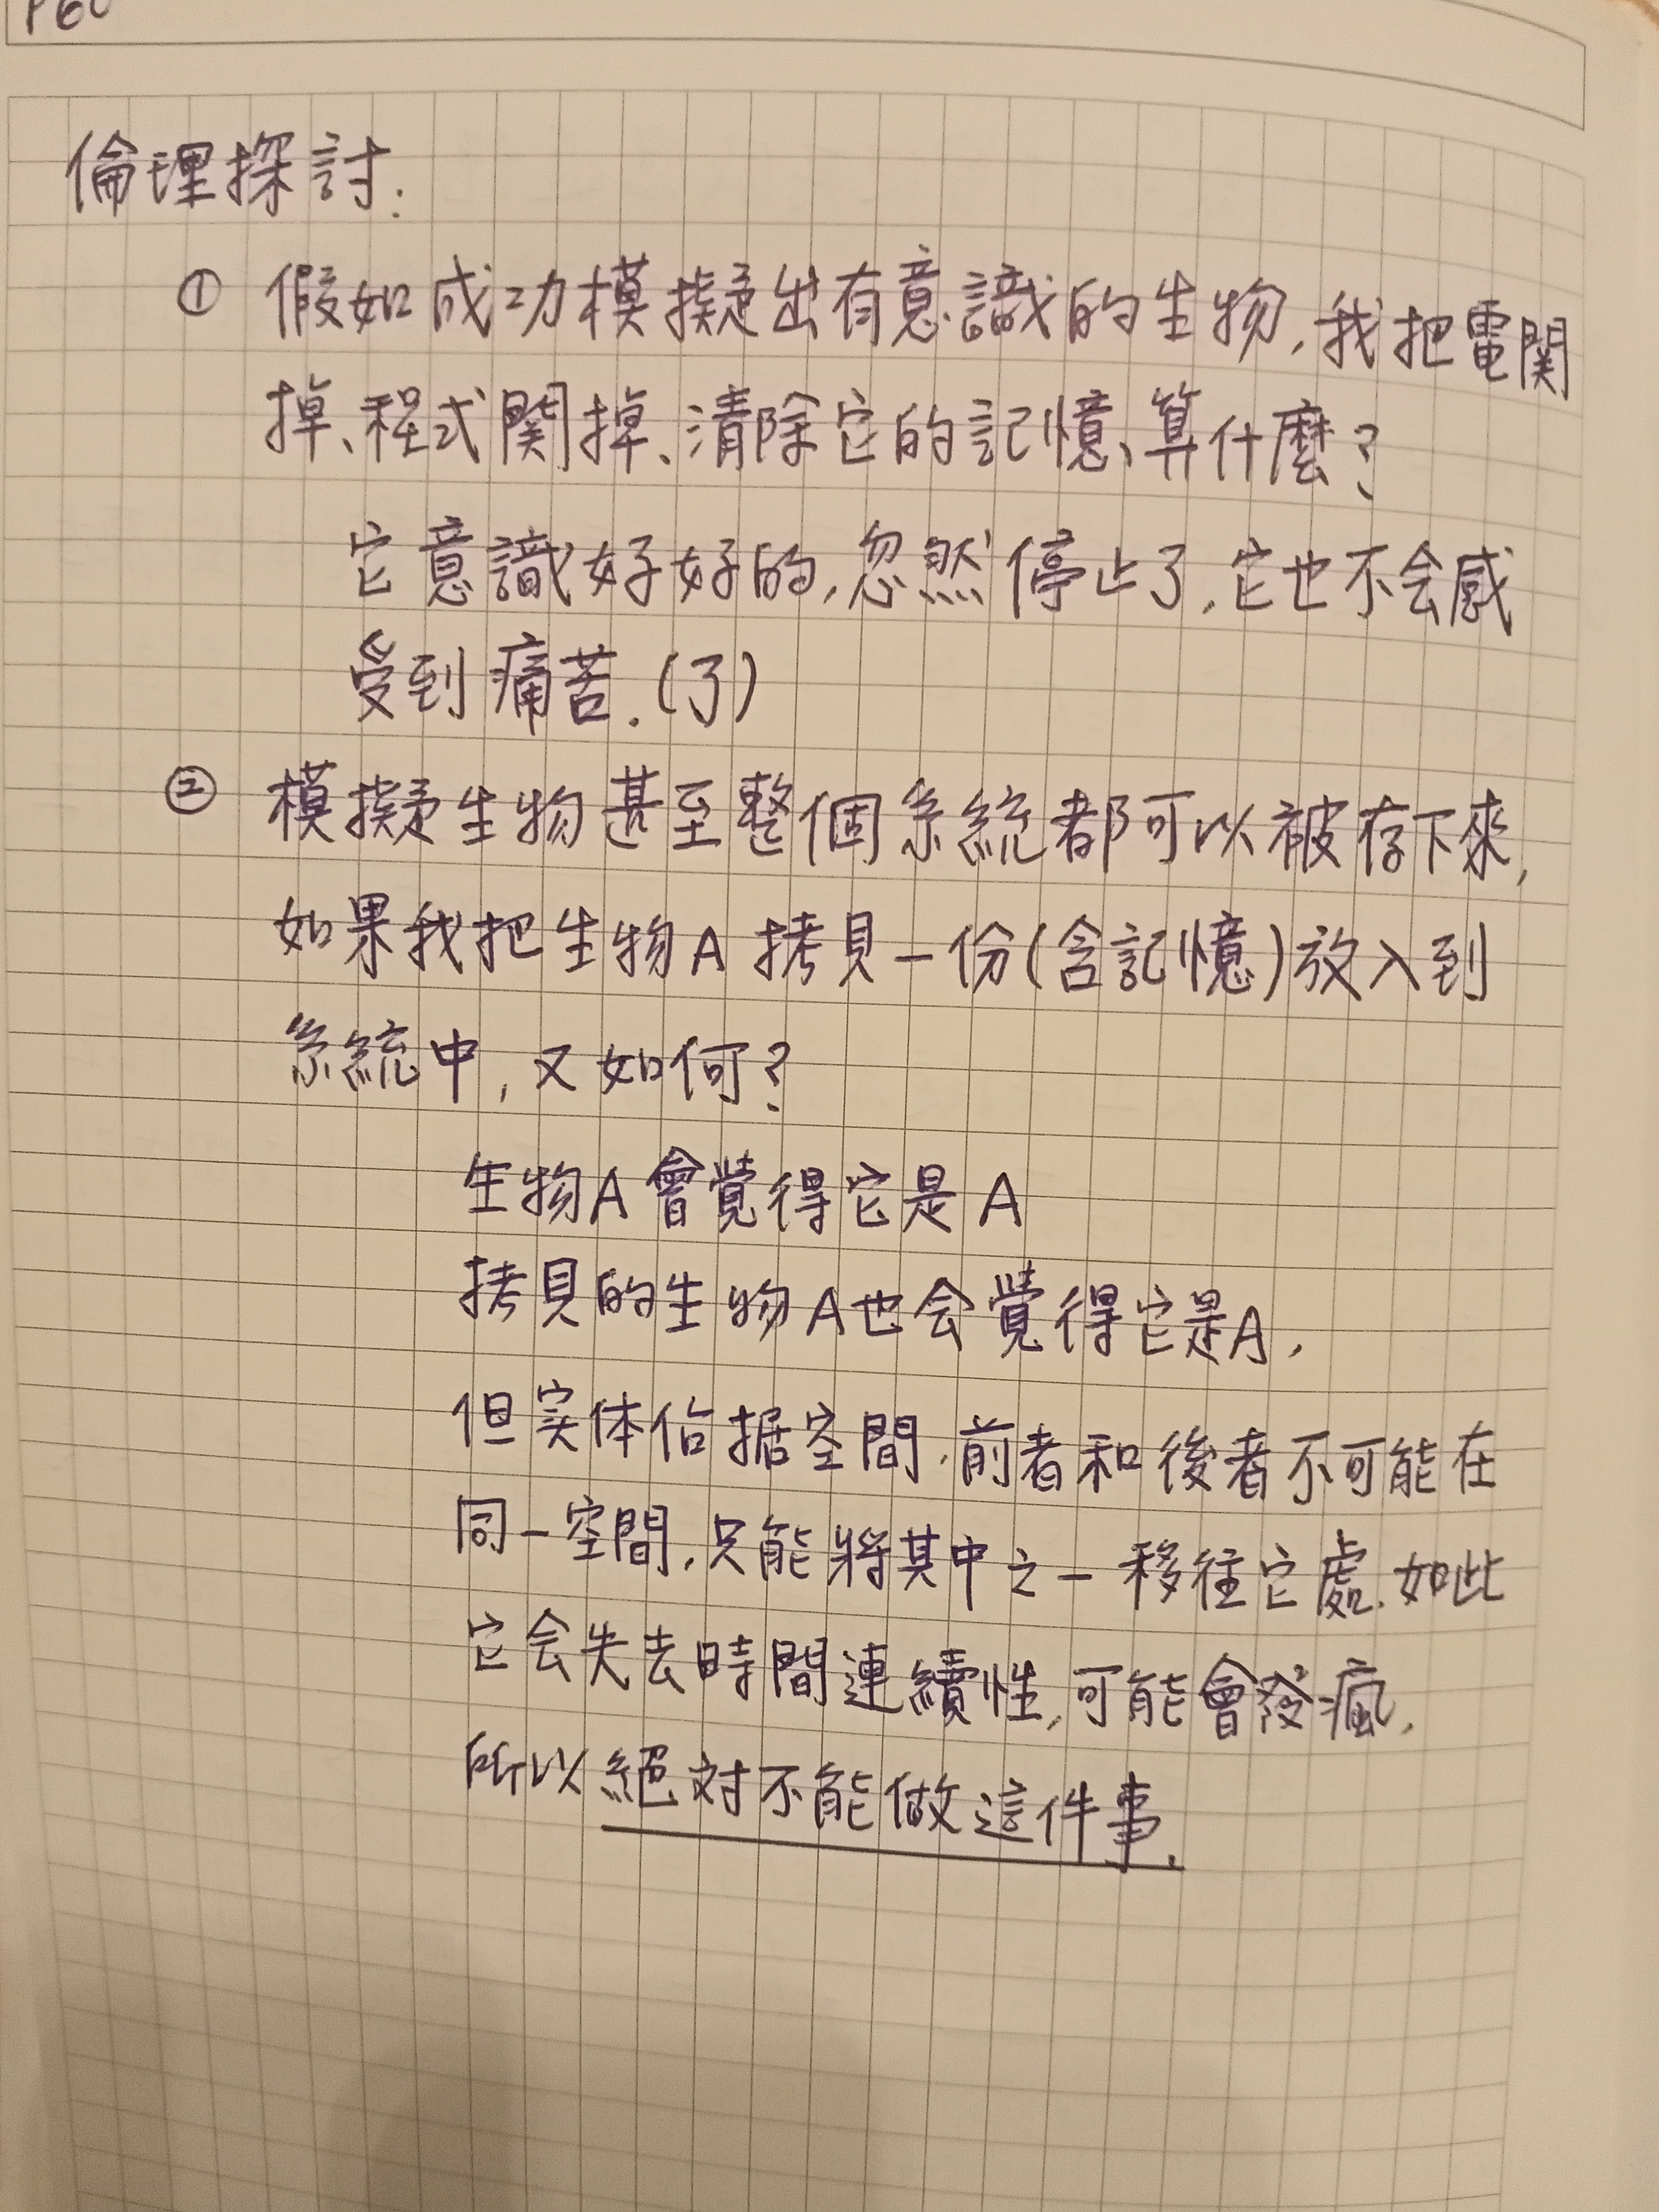 P60
倫理探討:
① 假如成功模擬出有意識的生物,我把電関
掉、程式関掉、清除它的記憶、算什麼?
它意識好好的,忽然停止了,它也不会感
受到痛苦.(了)
② 模擬生物甚至整個系統都可以被存下來,
如果我把生物A拷貝一份(含記憶)放入到
系統中,又如何?
生物A會覺得它是A
拷貝的生物A也会覺得它是A,
但实体佔据空間,前者和後者不可能在
同一空間,只能將其中之一移往它處.如此
它会失去時間連續性,可能會發瘋,
所以絕对不能做這件事.